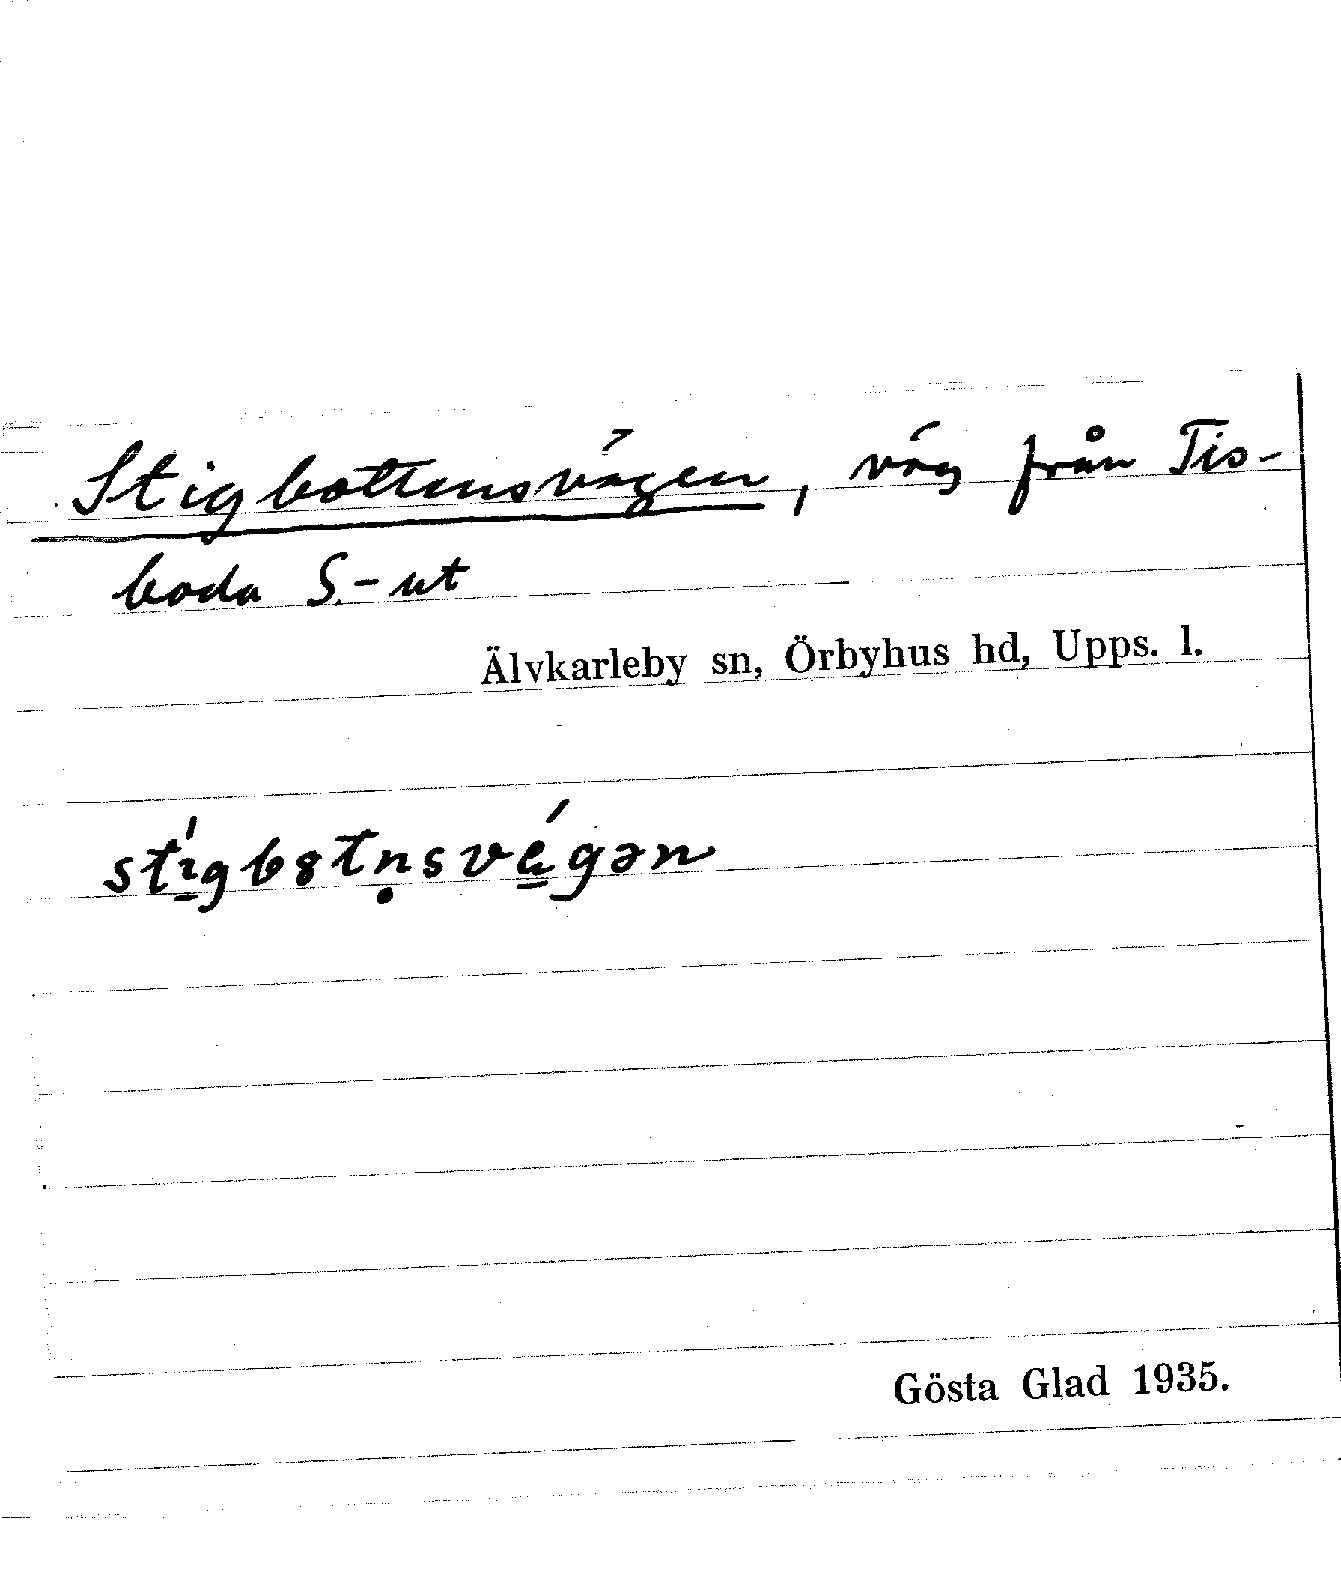 Stigbottensvägen, väg från Tis-
boda S.-ut
Älvkarleby sn, Örbyhus hd, Upps. l.
stı̠́gbȣtṇsvé̠gən
Gösta Glad 1935.